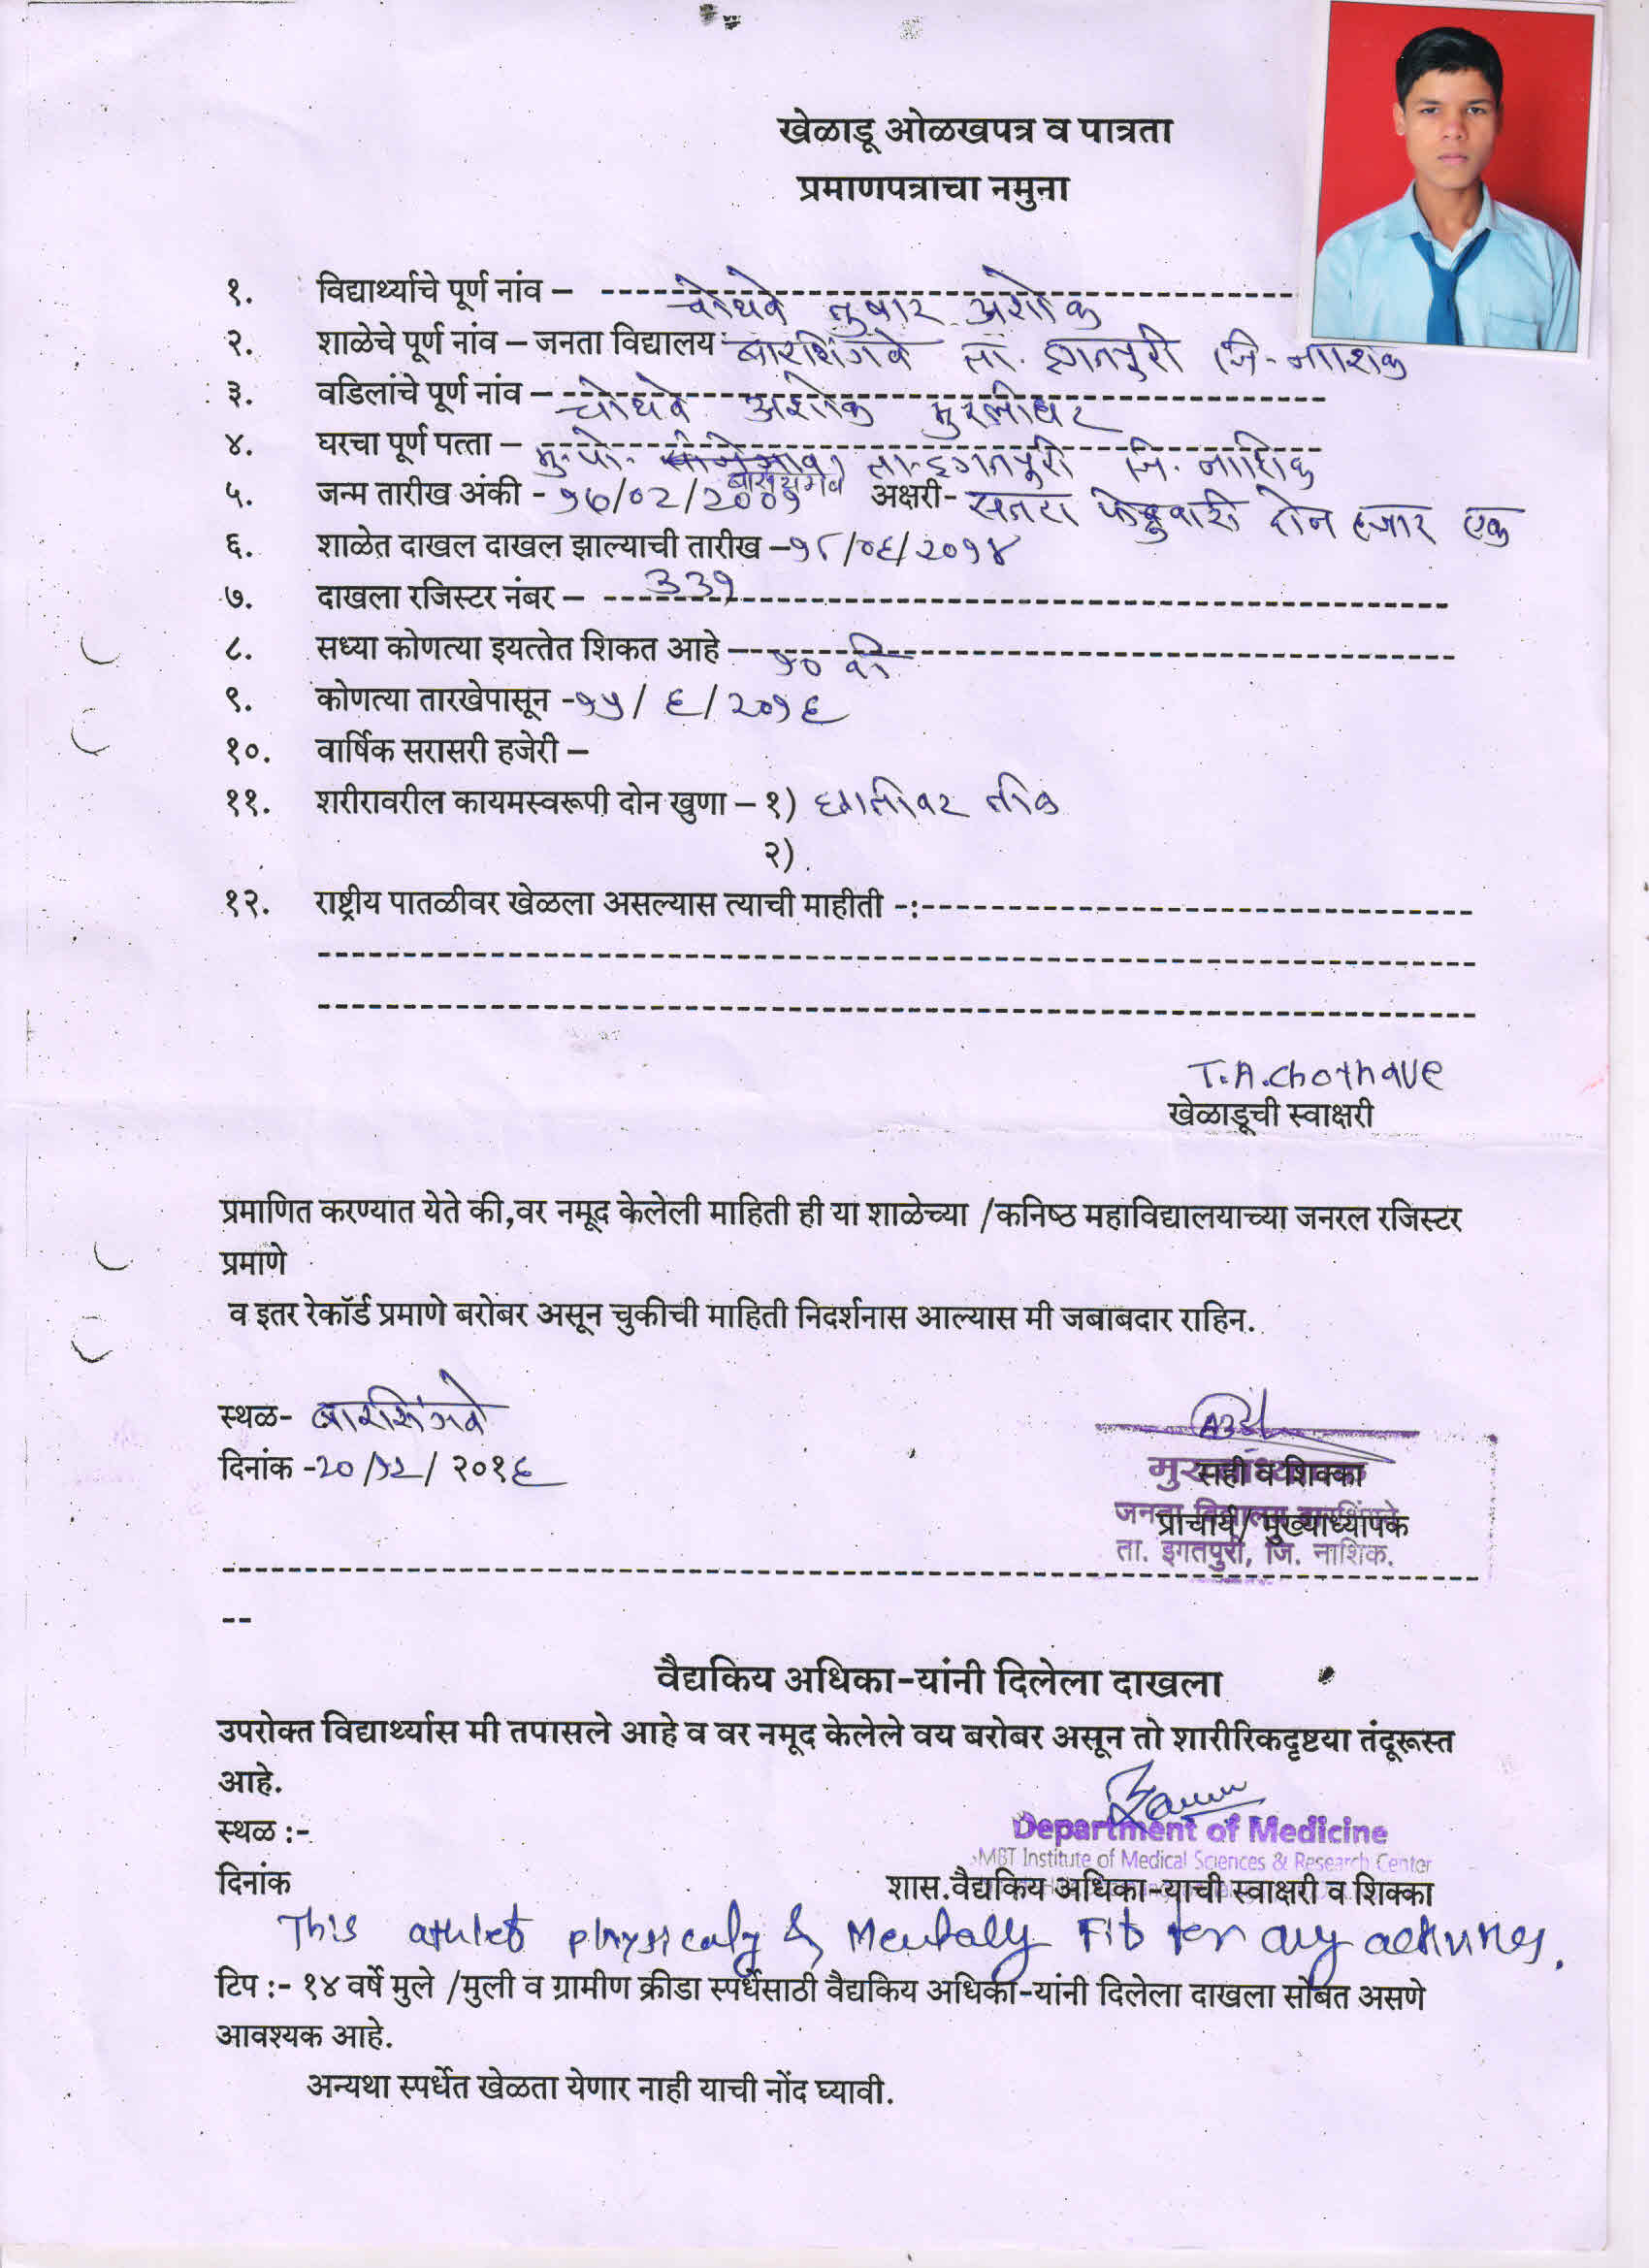 खेळाडू ओळखपत्र व पात्रता
प्रमाणपत्राचा नमुना
१. विद्यार्थ्याचे पूर्ण नांव – चोथवे तुषार अशोक
२. शाळेचे पूर्ण नांव – जनता विद्यालय बारशिंगवे ता. इगतपुरी जि-नाशिक
३. वडिलांचे पूर्ण नांव – चोथवे अशोक मुरलीधर
४. घरचा पूर्ण पत्ता – मु.पो. ता-इगतपुरी जि. नाशिक
५. जन्म तारीख अंकी - १७/०२/२००१ अक्षरी- सतरा फेब्रुवारी दोन हजार एक
६. शाळेत दाखल दाखल झाल्याची तारीख – १८/०६/२०१४
७. दाखला रजिस्टर नंबर – ३३१
८. सध्या कोणत्या इयत्तेत शिकत आहे – १० वी
९. कोणत्या तारखेपासून - १५/६/२०१६
१०. वार्षिक सरासरी हजेरी –
११. शरीरावरील कायमस्वरूपी दोन खुणा – १) छातीवर तीळ
२)
१२. राष्ट्रीय पातळीवर खेळला असल्यास त्याची माहीती -:
T.A.Chothave
खेळाडूची स्वाक्षरी
प्रमाणित करण्यात येते की,वर नमूद केलेली माहिती ही या शाळेच्या /कनिष्ठ महाविद्यालयाच्या जनरल रजिस्टर
प्रमाणे
व इतर रेकॉर्ड प्रमाणे बरोबर असून चुकीची माहिती निदर्शनास आल्यास मी जबाबदार राहिन.
स्थळ- बारशिंगवे
दिनांक -२०/१२/२०१६
सही व शिक्का
प्राचार्य/ मुख्याध्यापक
ता. इगतपुरी, जि. नाशिक.
--
वैद्यकिय अधिका-यांनी दिलेला दाखला
उपरोक्त विद्यार्थ्यास मी तपासले आहे व वर नमूद केलेले वय बरोबर असून तो शारीरिकदृष्टया तंदूरूस्त
आहे.
स्थळ :-
Department of Medicine
SMBT Institute of Medical Sciences & Research Center
दिनांक
शास.वैद्यकिय अधिका-याची स्वाक्षरी व शिक्का
This athlet physicaly & Mentally Fit for any activities.
टिप :- १४ वर्षे मुले /मुली व ग्रामीण क्रीडा स्पर्धेसाठी वैद्यकिय अधिका-यांनी दिलेला दाखला सोबत असणे
आवश्यक आहे.
अन्यथा स्पर्धेत खेळता येणार नाही याची नोंद घ्यावी.